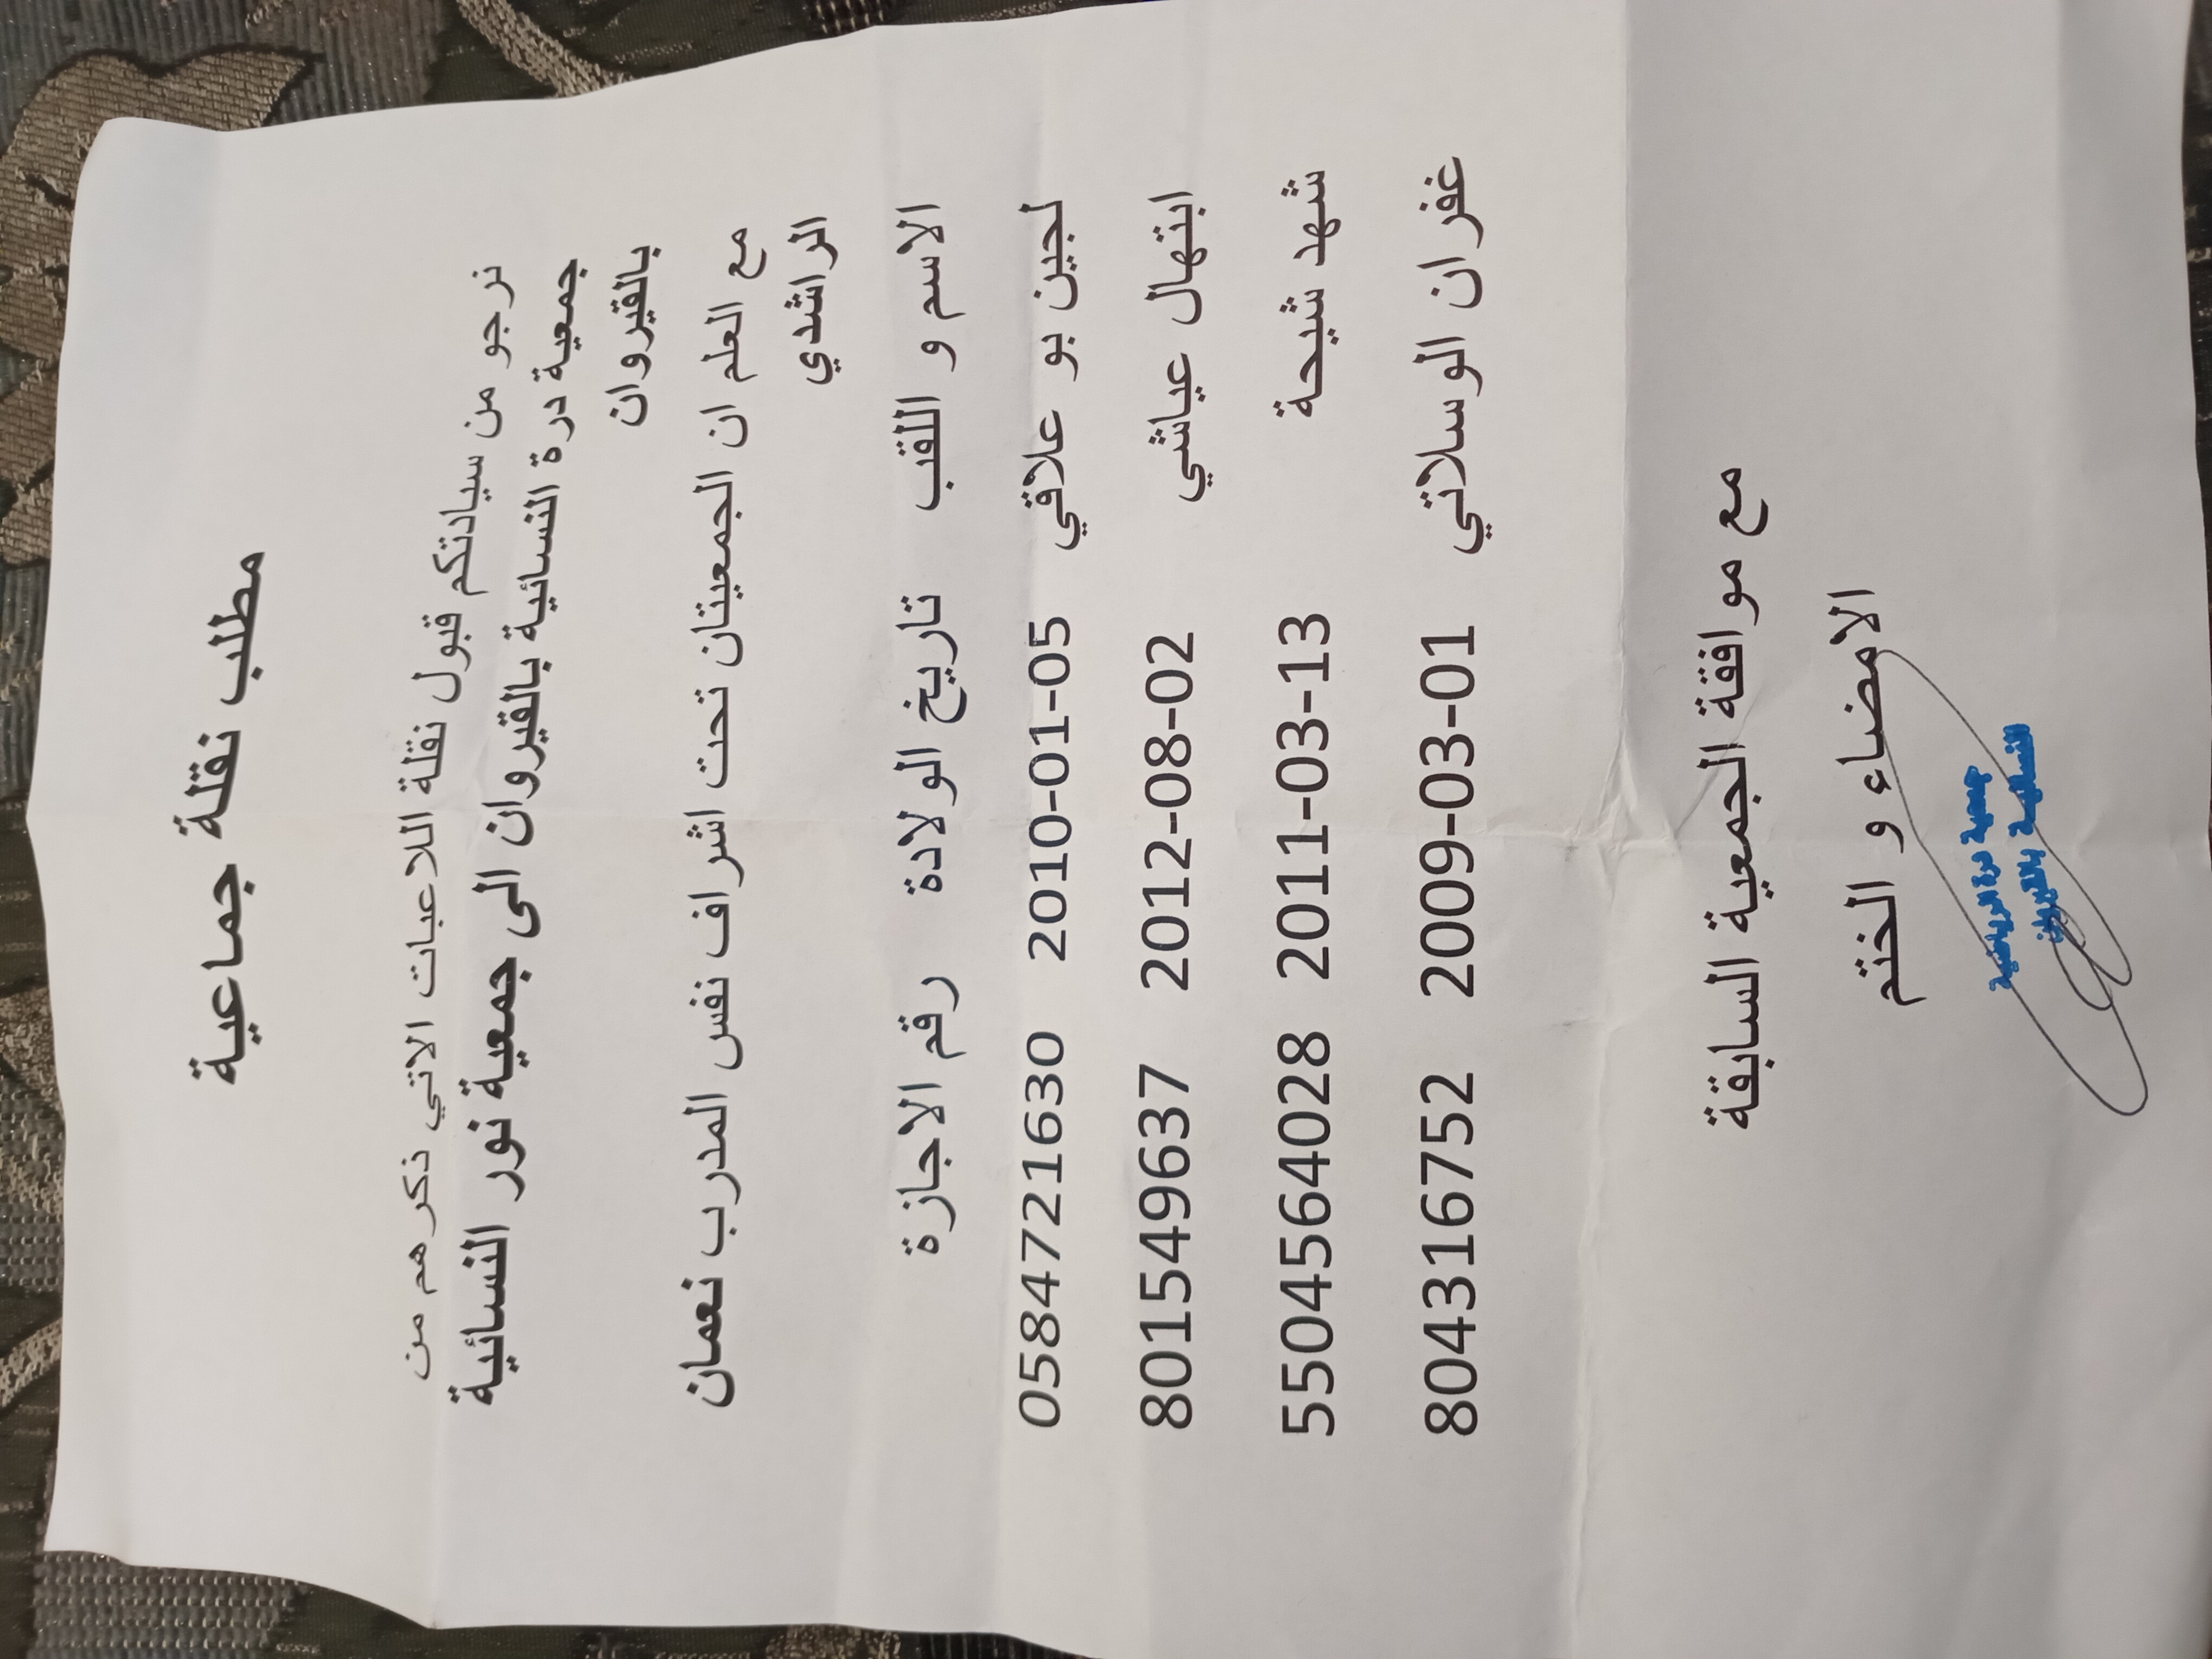 مطلب نقلة جماعية
نرجو من سيادتكم قبول نقلة اللاعبات الاتي ذكرهم من
جمعية درة النسائية بالقيروان الى جمعية نور النسائية
بالقيروان
مع العلم ان الجمعيتان تحت اشراف نفس المدرب نعمان
الراشدي
الاسم و اللقب تاريخ الولادة رقم الاجازة
لجين بو علاقي 2010-01-05 0584721630
ابتهال عياشي 2012-08-02 8015549637
شهد شيحة 2011-03-13 5504564028
غفران الوسلاتي 2009-03-01 804316752
مع موافقة الجمعية السابقة
الامضاء و الختم
جمعية درة الرياضية
النسائية بالقيروان